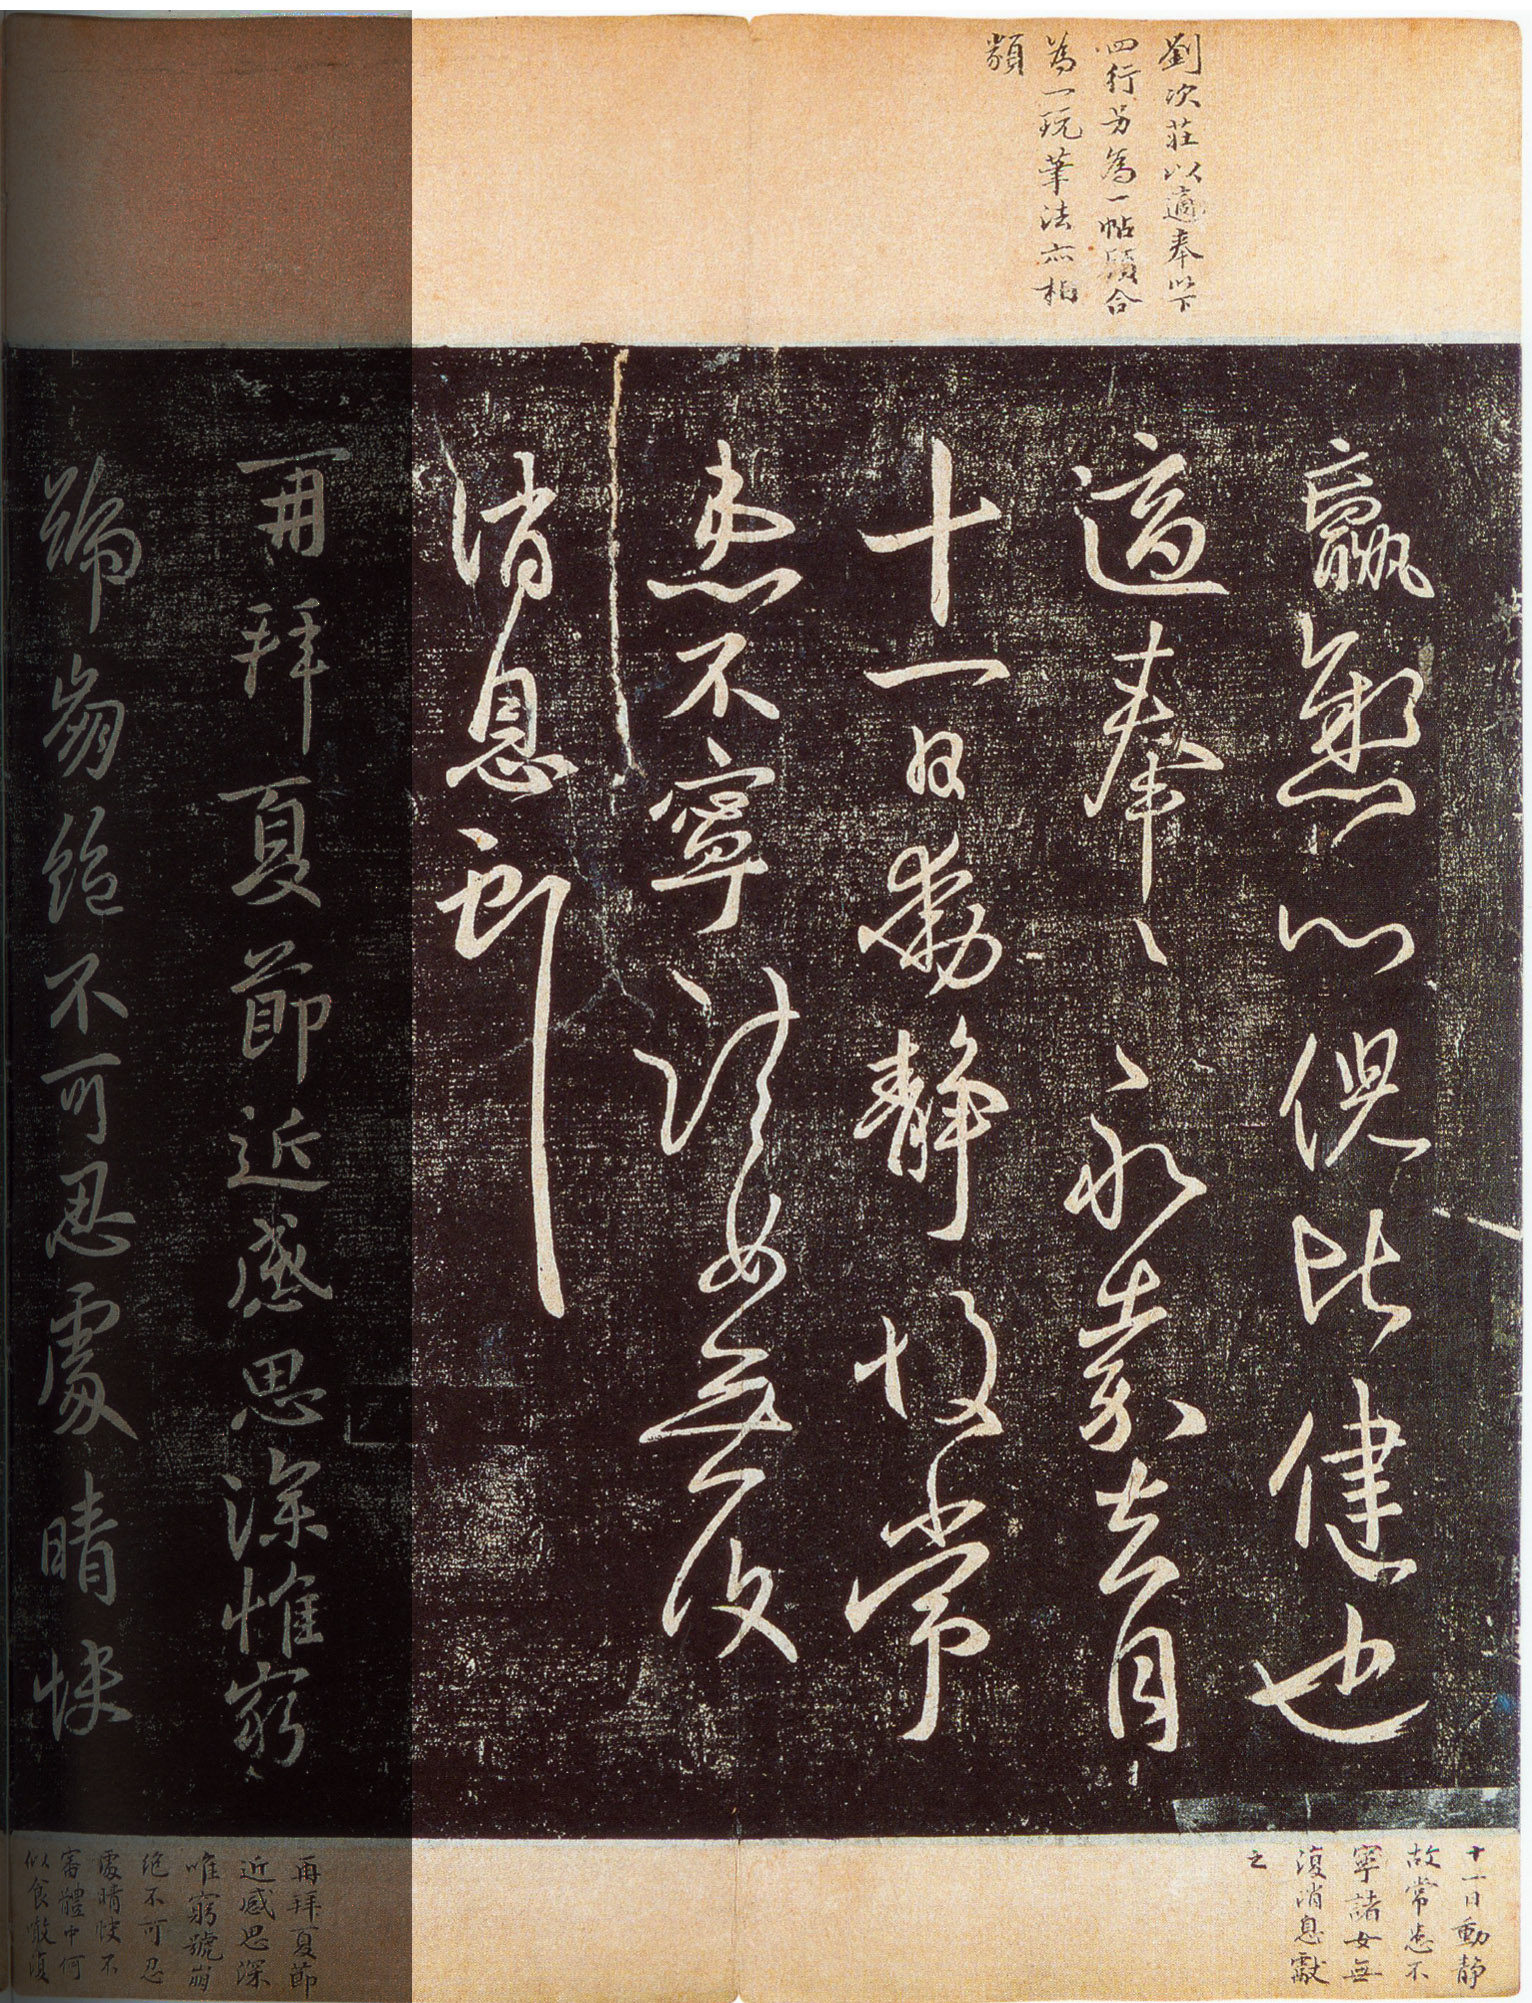 劉次莊以適奉以下
四行另為一帖須合
為一玩筆法亦相
類
羸愁人俱比健也
適奉〻〻永嘉去月
十一日動静故常
患不寧諸女無復
消息獻
再拜夏節近感思深惟窮
號崩絶不可忍處晴快
十一日動静
故常患不
寧諸女無
復消息獻
之
再拜夏節
近感思深
唯窮號崩
絶不可忍
處晴快不
審體中何
似食噉復